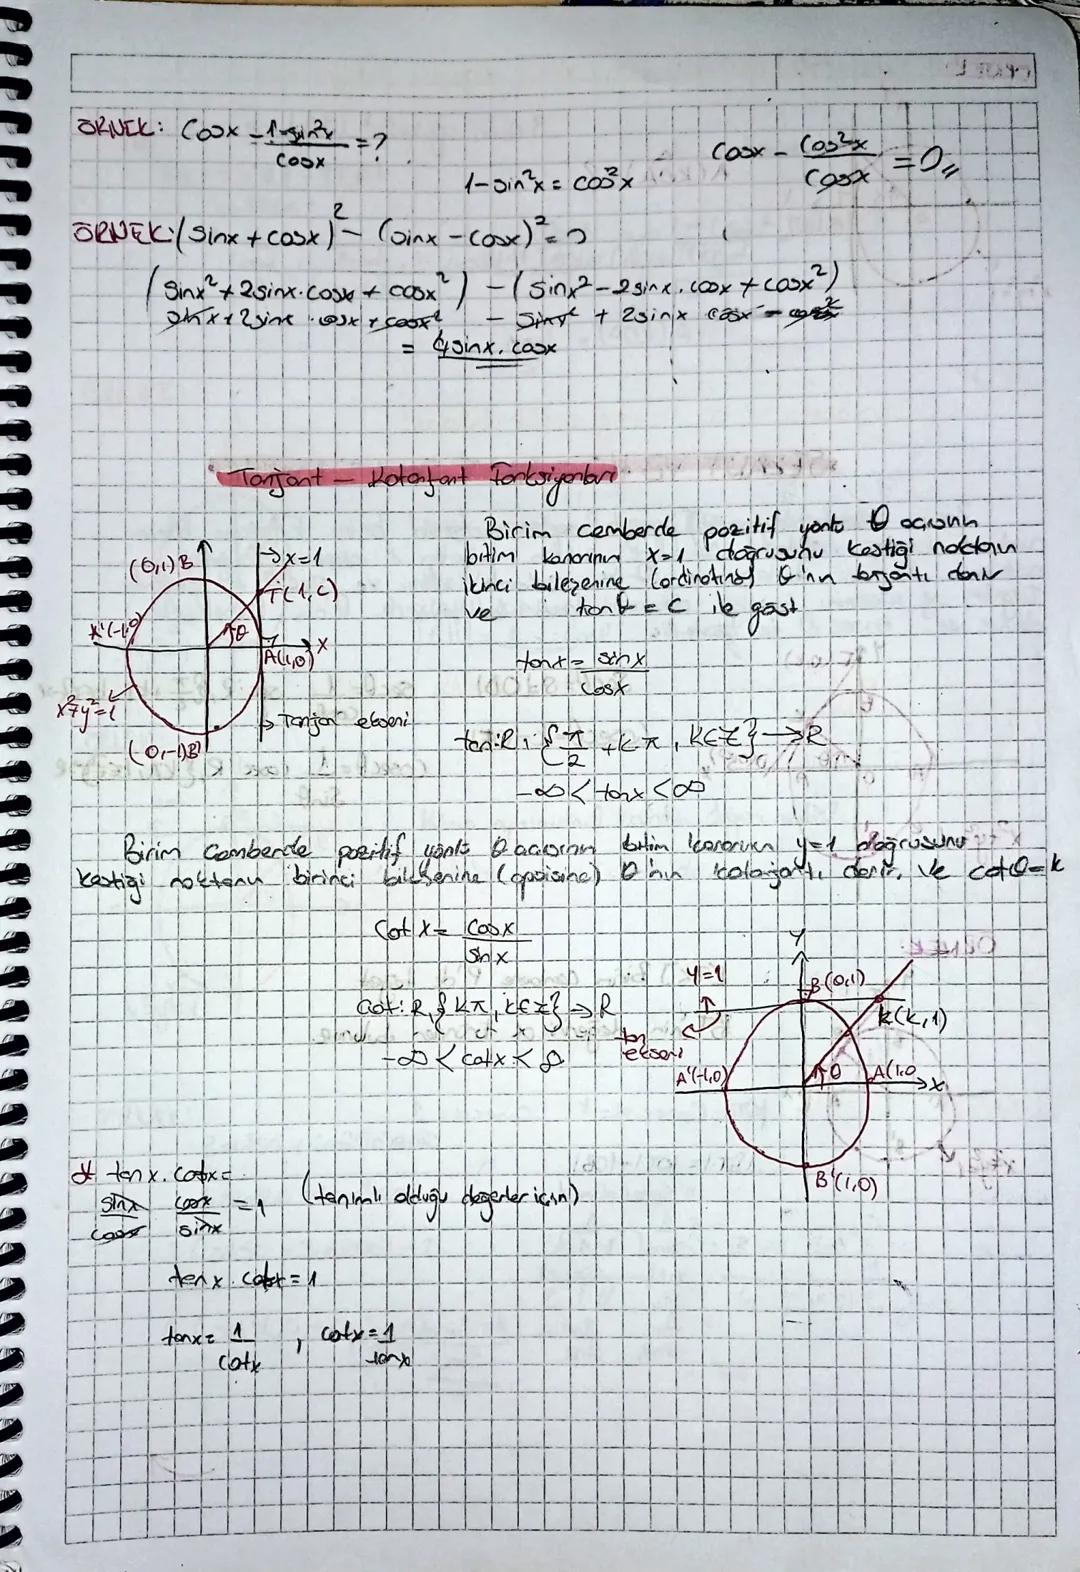 ÖRNEK: Cosx - 1-sin²x / cosx = ?
1-sin²x = cos²x
cosx - cos²x / cosx = 0,,
ÖRNEK: (sinx + cosx)² - (sinx - cosx)² = ?
(sinx² + 2sinx.cosx + cosx²) - (sinx² - 2sinx.cosx + cosx²)
sinx + 2sinx.cosx + cosx² - sinx² + 2sinx cosx - cosx²
= 4sinx.cosx
Tanjant - Kotanjant Fonksiyonları
Birim çemberde pozitif yönlü θ açısının
bitim kenarının x=1 doğrusunu kestiği noktanın
ikinci bileşenine (ordinatına) θ'nın tanjantı denir
ve tanθ = C ile göst.
(0,1)B
→x=1
T(1,C)
x'(-1,0)
θ
A(1,0)
x
x²+y²=1
→ Tanjant ekseni
(0,-1)B'
tanx = sinx / cosx
tan: R \ {π/2 + kπ, k∈Z} → R
-∞ < tanx < ∞
Birim çemberde pozitif yönlü θ açısının bitim kenarının y=1 doğrusunu
kestiği noktanın birinci bileşenine (apsisine) θ'nın kotanjantı denir. ve cotθ=k
Cot x = cosx / sinx
cot: R \ {kπ, k∈Z} → R
-∞ < cotx < ∞
y
y=1
B(0,1)
k(k,1)
ekseni
A'(-1,0)
θ
A(1,0
x
B'(1,0)
* tanx.cotx =
sinx / cosx cosx / sinx = 1 (tanımlı olduğu değerler için)
tanx.cotx = 1
tanx = 1 / cotx , cotx = 1 / tanx